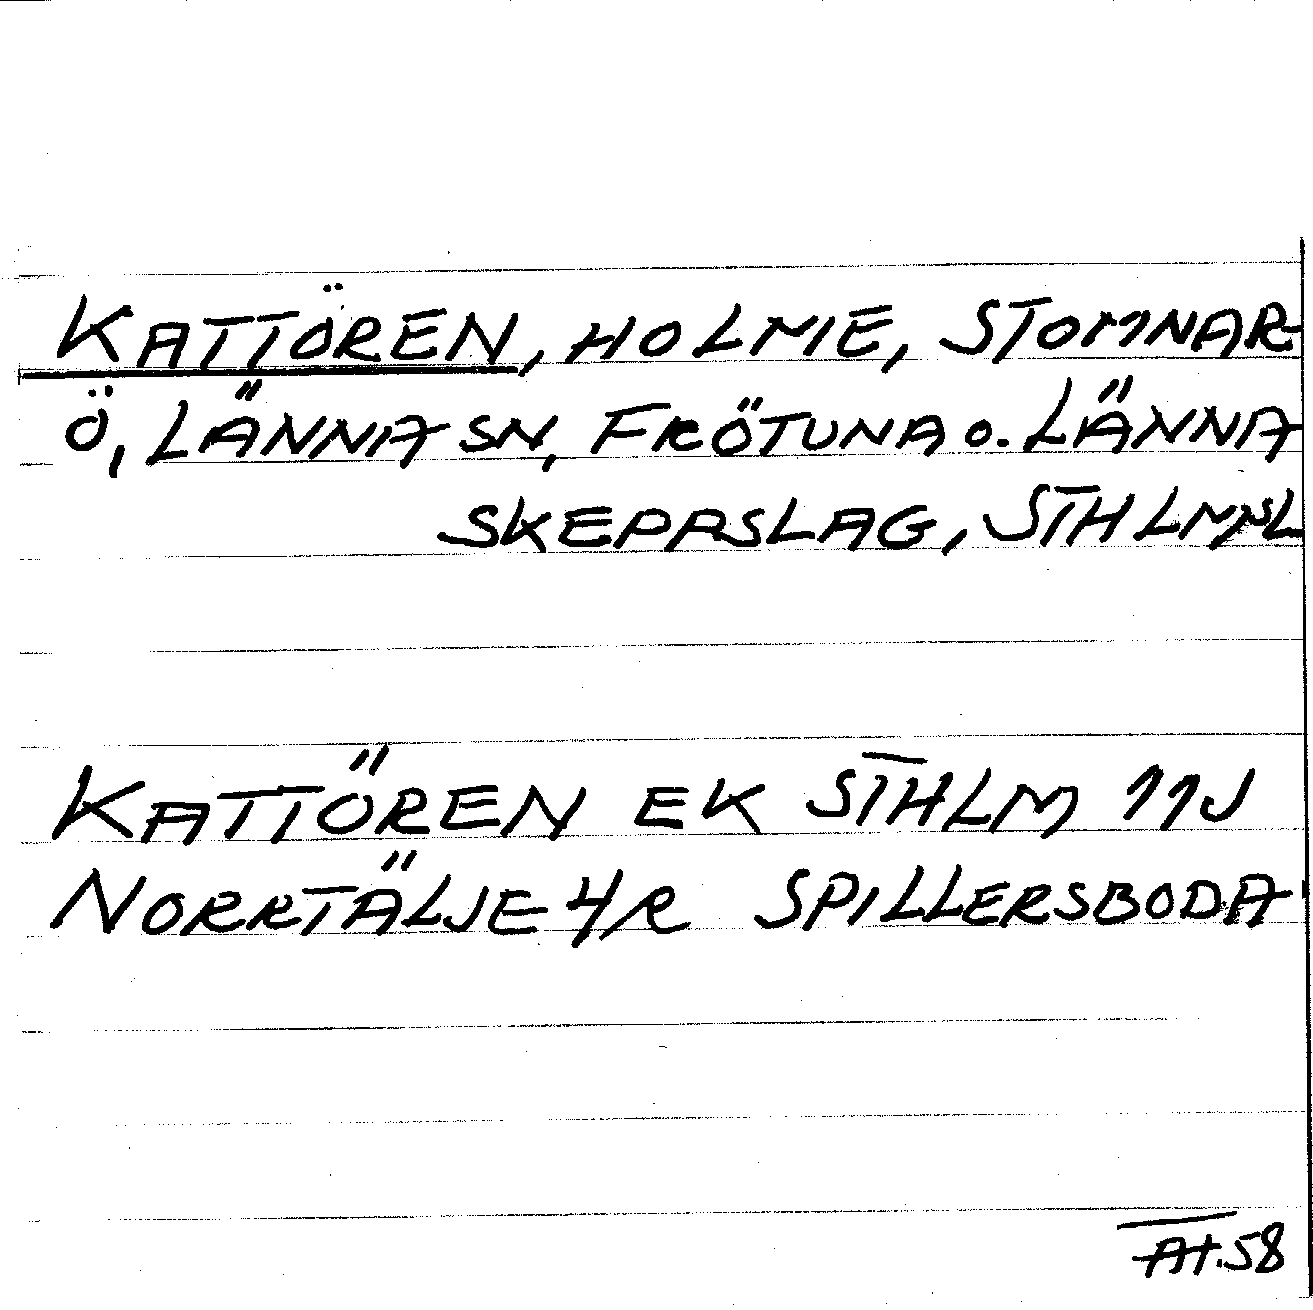 KATTÖREN, HOLME, STOMNAR-
Ö, LÄNNA SN, FRÖTUNA O. LÄNNA
SKEPPSLAG, STHLMSL
KATTÖREN EK STHLM 11J
NORRTÄLJE 4/R SPILLERSBODA
58